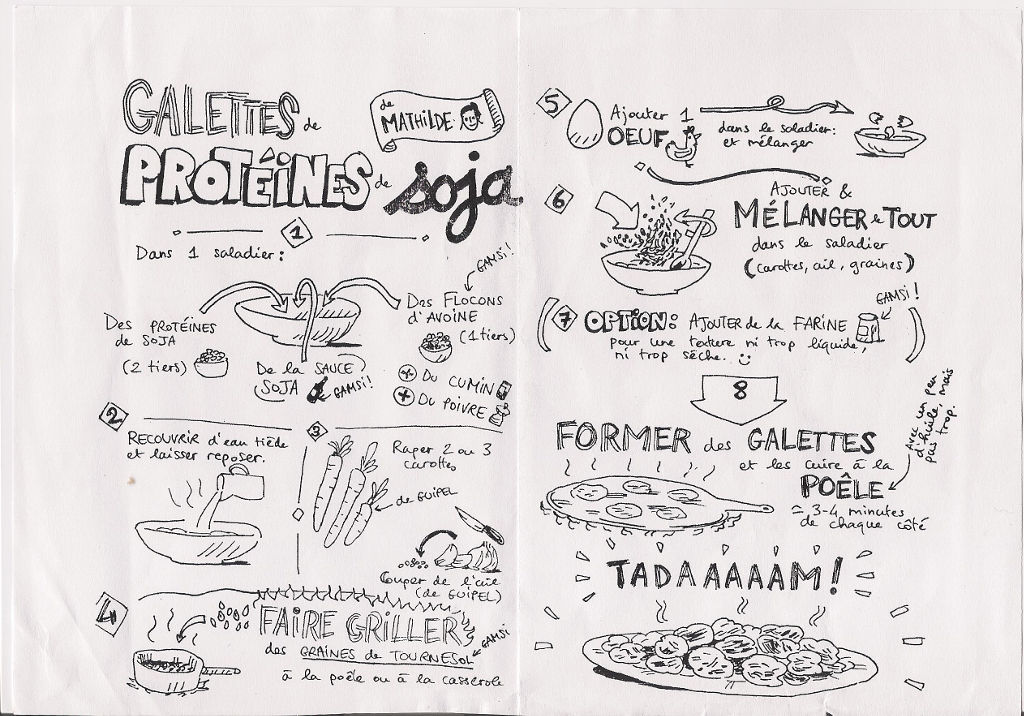 GALETTES de
PROTÉINES de soja
de
MATHILDE
1
Dans 1 saladier:
Des PROTÉINES
de SOJA
(2 tiers)
De la SAUCE
SOJA
GAMSI!
GAMSI!
Des FLOCONS
d'AVOINE
(1 tiers)
+ Du CUMIN
+ Du POIVRE
2
RECOUVRIR d'eau tiède
et laisser reposer.
3
Raper 2 ou 3
carottes
de GUIPEL
Couper de l'ail
(de GUIPEL)
4
FAIRE GRILLER
des GRAINES de TOURNESOL
GAMSI
à la poêle ou à la casserole
5
Ajouter 1
OEUF
dans le saladier:
et mélanger
6
AJOUTER &
MÉLANGER le TOUT
dans le saladier
(carottes, ail, graines)
GAMSI!
(7 OPTION: AJOUTER de la FARINE
pour une texture ni trop liquide,
ni trop sèche. :))
8
FORMER des GALETTES
et les cuire à la
POÊLE
avec un peu
d'huile mais
pas trop.
≃ 3-4 minutes
de chaque côté
TADAAAAAM!